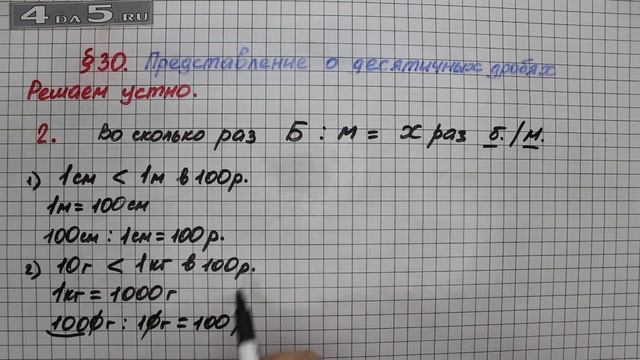 4DA5.RU
§30. Представление о десятичных дробях
Решаем устно.
2. Во сколько раз Б : м = х раз б./м.
1) 1см < 1м в 100р.
1м = 100см
100см : 1см = 100р.
2) 10г < 1кг в 100р.
1кг = 1000г
1000г : 10г = 100